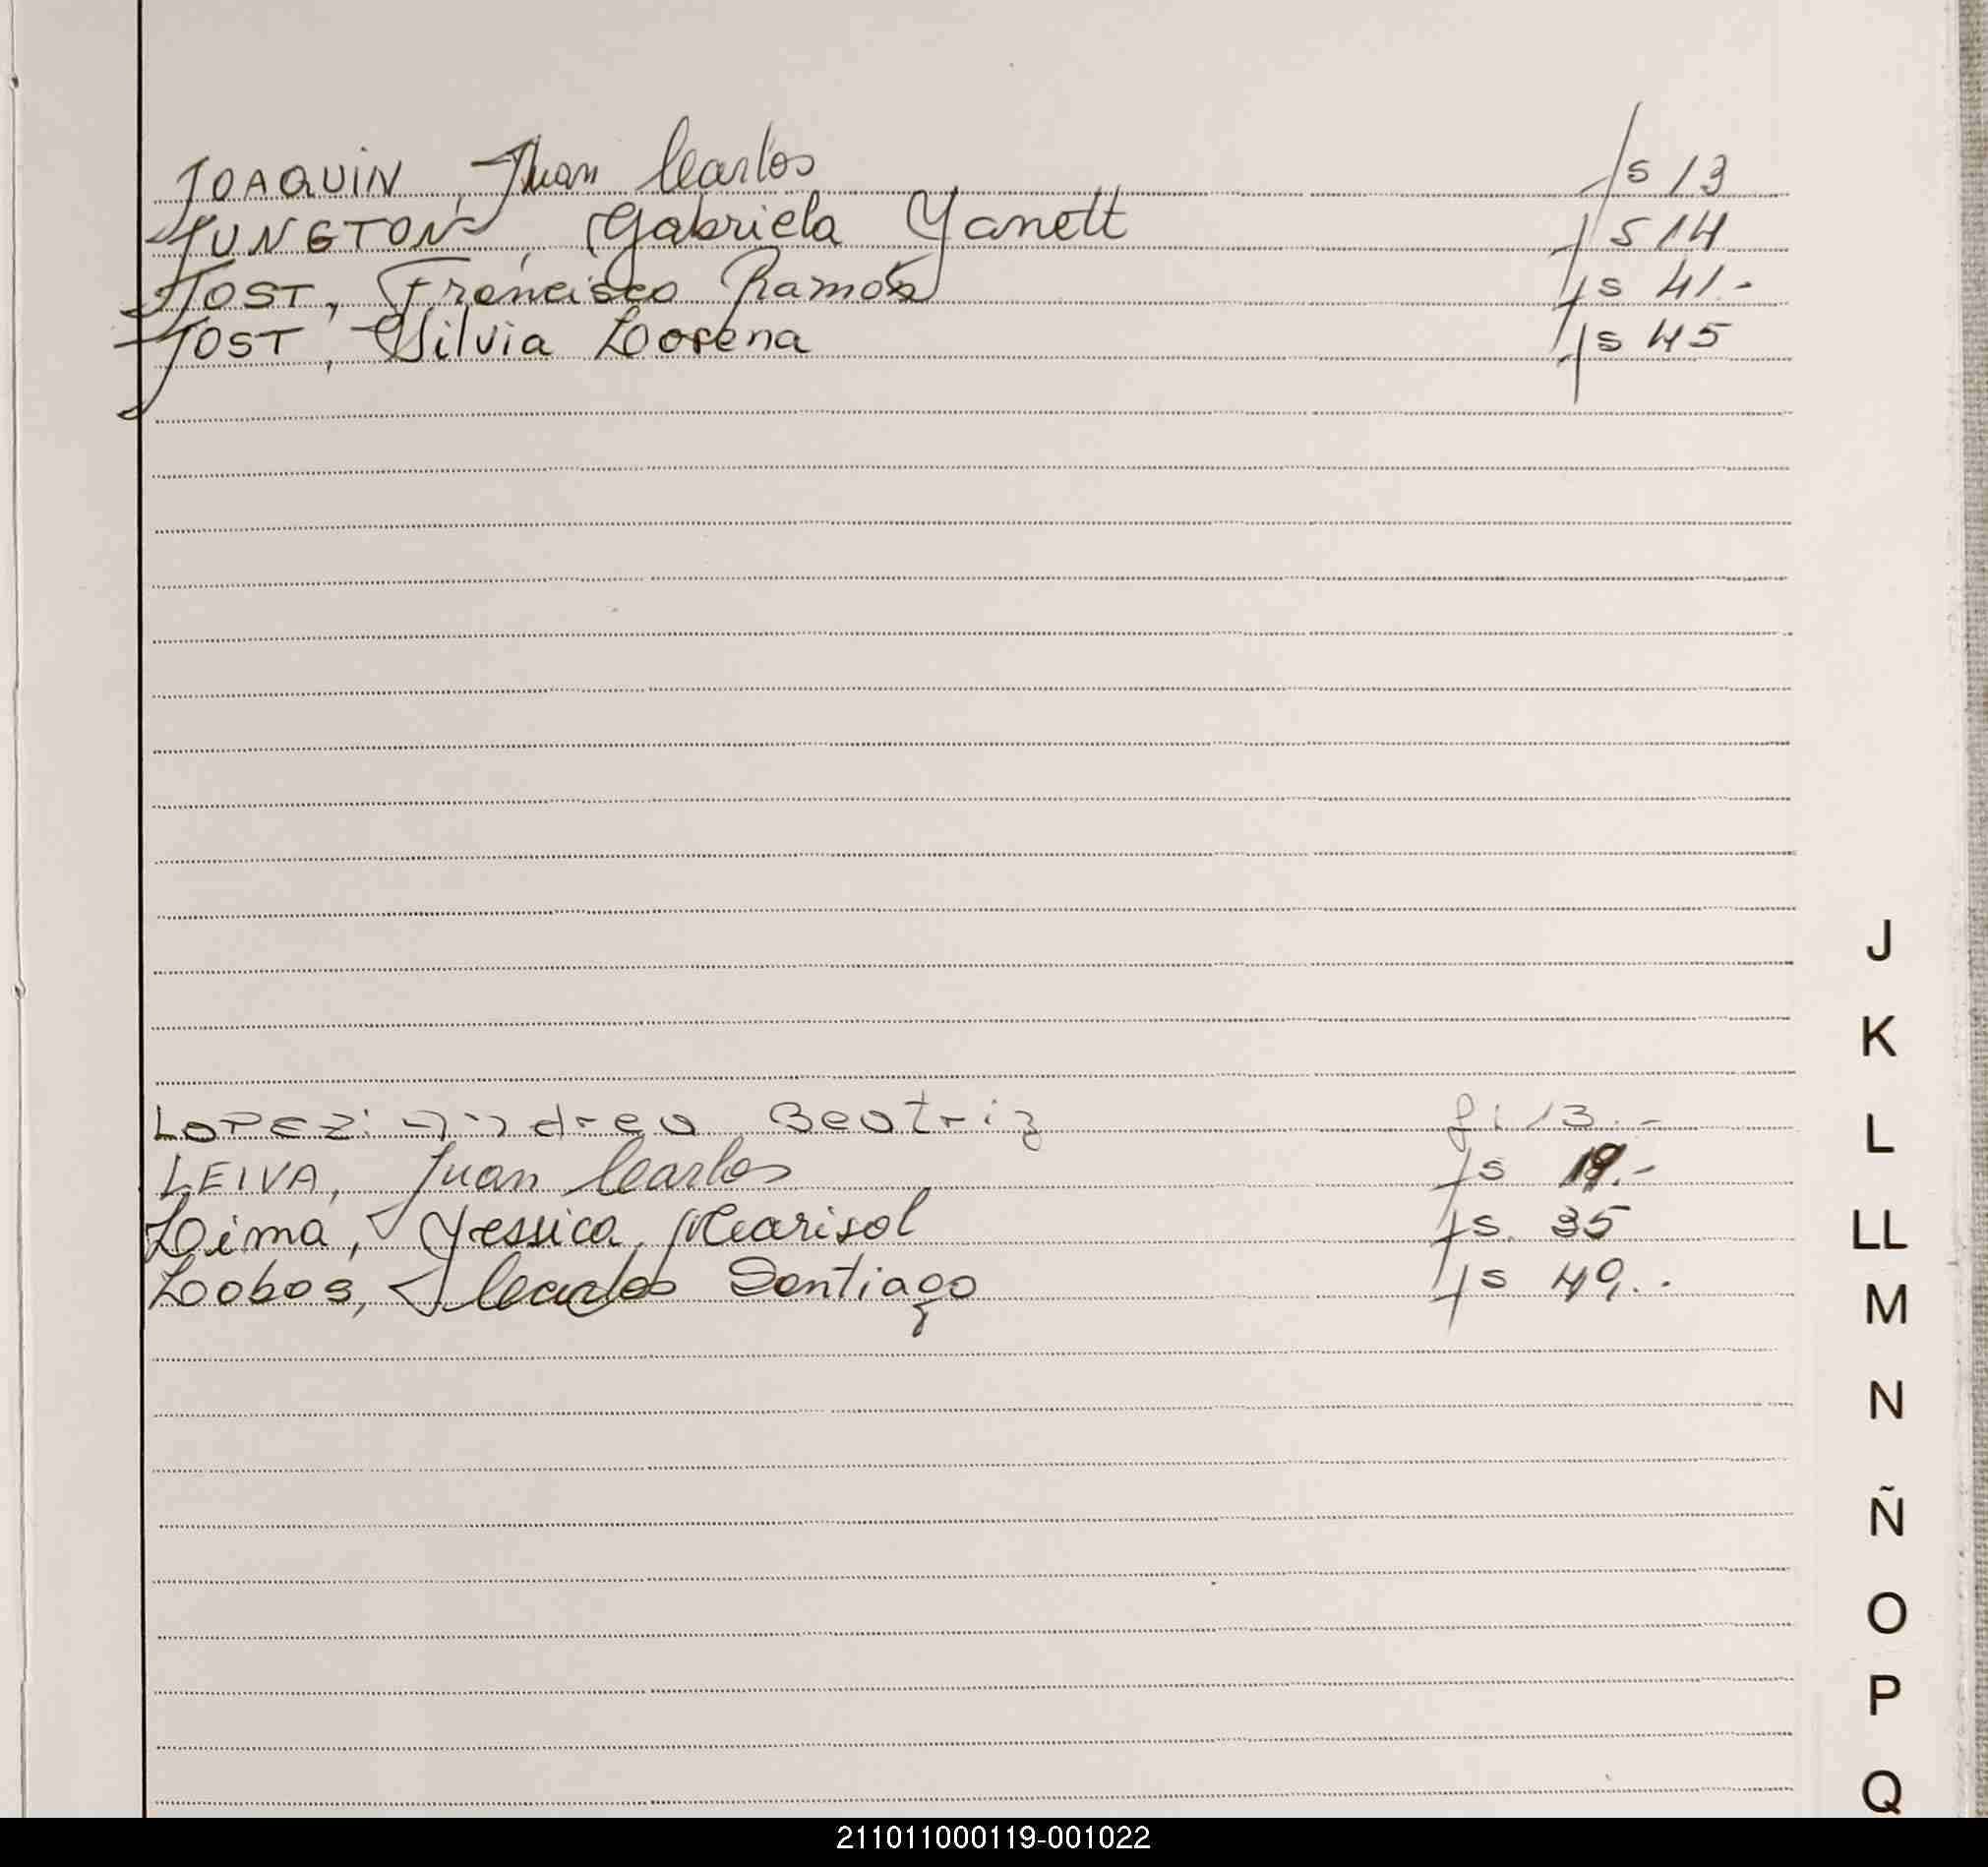 JOAQUIN, Juan Carlos fs 13
JUNGTON, Gabriela Yanett fs 14
JOST, Francisco Ramón fs 41.-
JOST, Silvia Lorena fs 45
LOPEZ: Andrea Beatriz fs 13.-
LEIVA, Juan Carlos fs 19.-
Lima, Yessica Marisol fs. 35
Lobos, Carlos Santiago fs 49.-
J
K
L
LL
M
N
Ñ
O
P
Q
211011000119-001022